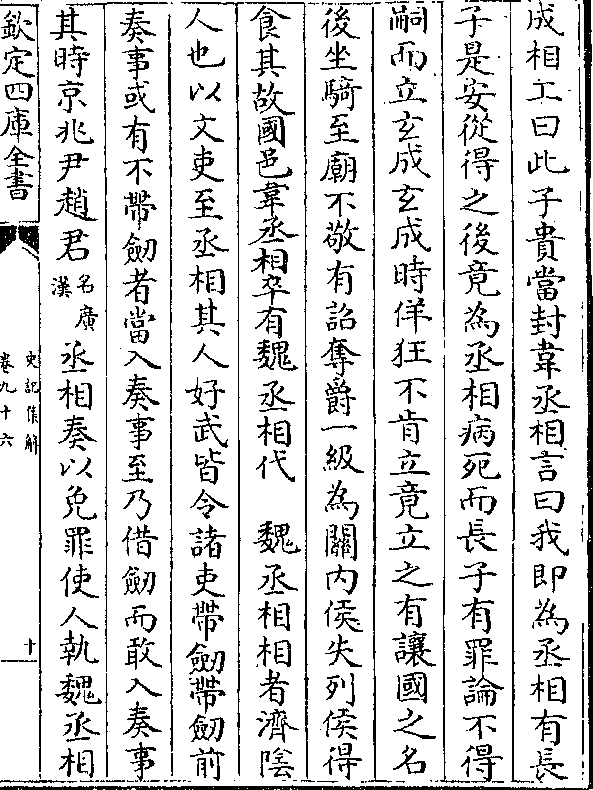 成相工曰此子貴當封韋丞相言曰我即為丞相有長
子是安從得之後竟為丞相病死而長子有罪論不得
嗣而立玄成玄成時佯狂不肯立竟立之有讓國之名
後坐騎至廟不敬有詔奪爵一級為關内侯失列侯得
食其故國邑韋丞相卒有魏丞相代　魏丞相相者濟隂
人也以文吏至丞相其人好武皆令諸吏帶劒帶劒前
奏事或有不帶劒者當入奏事至乃借劒而敢入奏事
其時京兆尹趙君名廣漢丞相奏以免罪使人執魏丞相
欽定四庫全書
史記集解
卷九十六
十